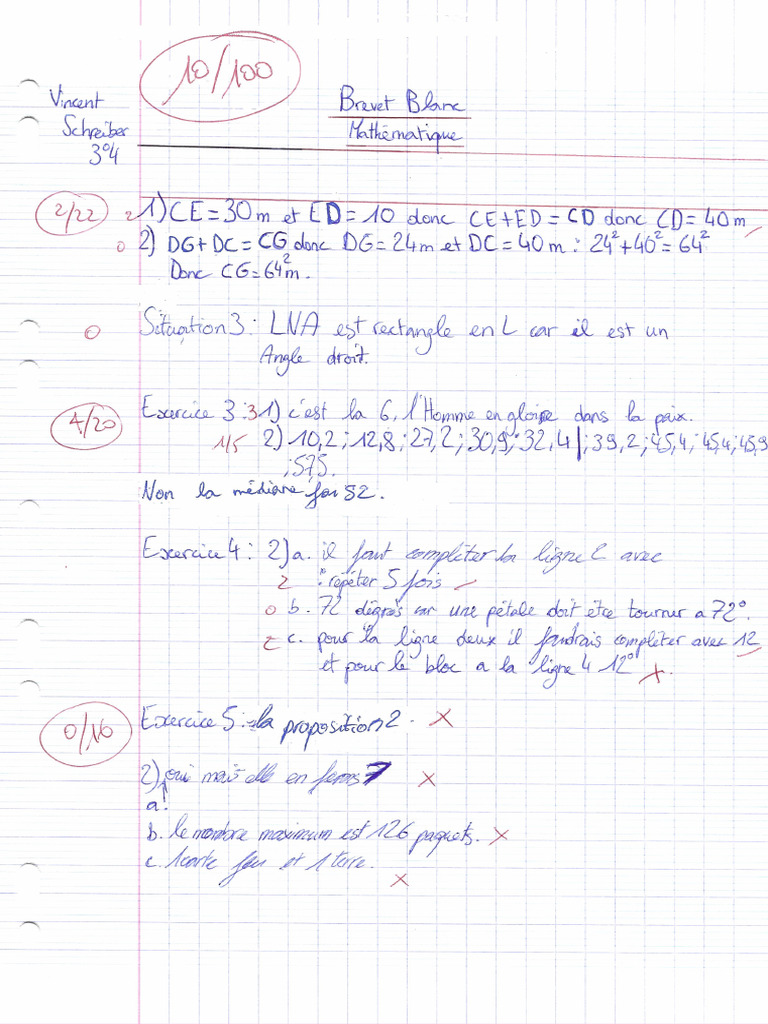 10/100
Vincent
Schreiber
3°4
Brevet Blanc
Mathématique
2/22
2 1) CE = 30 m et ED = 10 donc CE + ED = CD donc CD = 40 m
0 2) DG + DC = CG donc DG = 24 m et DC = 40 m : 24² + 40² = 64²
Donc CG = 64² m.
0 Situation 3 : LNA est rectangle en L car il est un
Angle droit.
4/20
Exercice 3 : 3 1) c'est la 6, l'Homme en gloire dans la paix.
1/5 2) 10,2 ; 12,8 ; 27,2 ; 30,9 ; 32,4 | ; 39,2 ; 45,4 ; 45,4 ; 45,9
; 57,5.
Non la médiane fai 52.
Exercice 4 : 2) a. il faut compléter la ligne 2 avec
2 : répéter 5 fois
0 b. 72 dégrés car une pétale doit être tourner a 72°.
2 c. pour la ligne deux il faudrais compléter avec 12
et pour le bloc a la ligne 4 12°
0/16
Exercice 5 : la proposition 2.
2) oui mais elle en feras 7
a!
b. le nombre maximum est 126 paquets.
c. 1 carte feu et 1 terre.